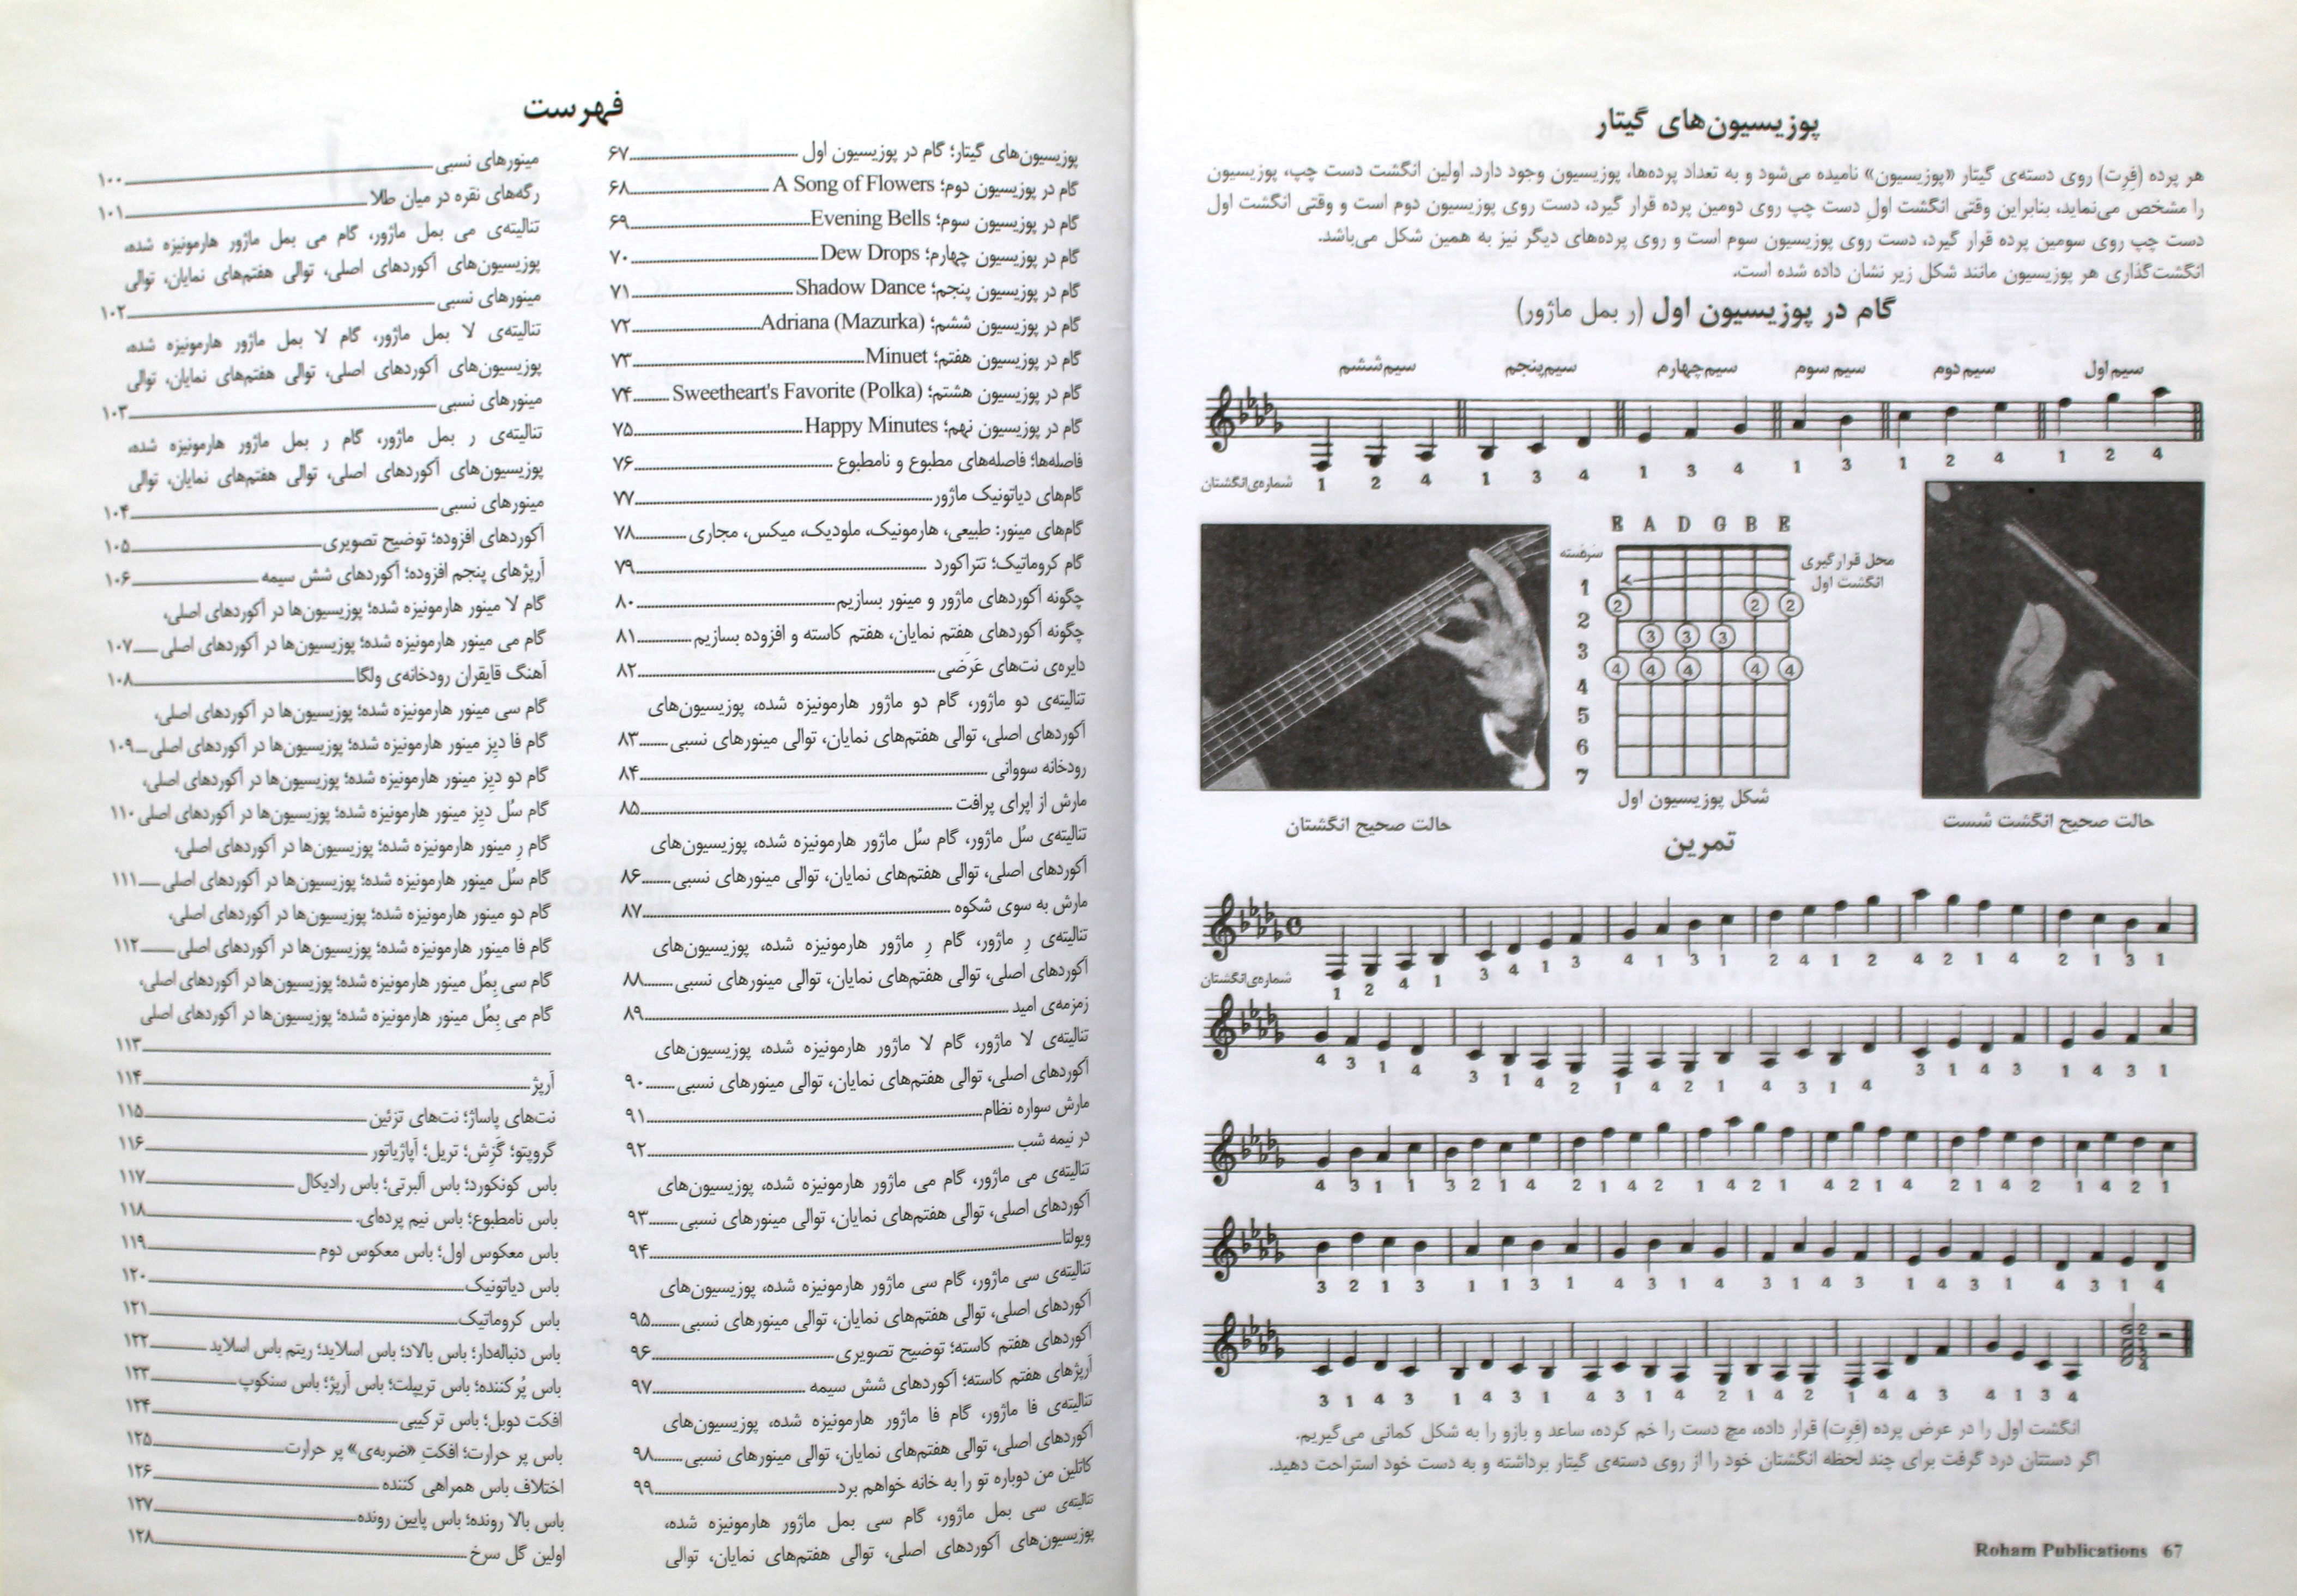 فهرست
پوزیسیون‌های گیتار؛ گام در پوزیسیون اول ۶۷
گام در پوزیسیون دوم؛ A Song of Flowers ۶۸
گام در پوزیسیون سوم؛ Evening Bells ۶۹
گام در پوزیسیون چهارم؛ Dew Drops ۷۰
گام در پوزیسیون پنجم؛ Shadow Dance ۷۱
گام در پوزیسیون ششم؛ Adriana (Mazurka) ۷۲
گام در پوزیسیون هفتم؛ Minuet ۷۳
گام در پوزیسیون هشتم؛ Sweetheart's Favorite (Polka) ۷۴
گام در پوزیسیون نهم؛ Happy Minutes ۷۵
فاصله‌ها؛ فاصله‌های مطبوع و نامطبوع ۷۶
گام‌های دیاتونیک ماژور ۷۷
گام‌های مینور: طبیعی، هارمونیک، ملودیک، میکس، مجاری ۷۸
گام کروماتیک؛ تتراکورد ۷۹
چگونه آکوردهای ماژور و مینور بسازیم ۸۰
چگونه آکوردهای هفتم نمایان، هفتم کاسته و افزوده بسازیم ۸۱
دایره‌ی نت‌های عَرَضی ۸۲
تنالیته‌ی دو ماژور، گام دو ماژور هارمونیزه شده، پوزیسیون‌های
آکوردهای اصلی، توالی هفتم‌های نمایان، توالی مینورهای نسبی ۸۳
رودخانه سووانی ۸۴
مارش از اپرای پرافت ۸۵
تنالیته‌ی سُل ماژور، گام سُل ماژور هارمونیزه شده، پوزیسیون‌های
آکوردهای اصلی، توالی هفتم‌های نمایان، توالی مینورهای نسبی ۸۶
مارش به سوی شکوه ۸۷
تنالیته‌ی رِ ماژور، گام رِ ماژور هارمونیزه شده، پوزیسیون‌های
آکوردهای اصلی، توالی هفتم‌های نمایان، توالی مینورهای نسبی ۸۸
زمزمه‌ی امید ۸۹
تنالیته‌ی لا ماژور، گام لا ماژور هارمونیزه شده، پوزیسیون‌های
آکوردهای اصلی، توالی هفتم‌های نمایان، توالی مینورهای نسبی ۹۰
مارش سواره نظام ۹۱
در نیمه شب ۹۲
تنالیته‌ی می ماژور، گام می ماژور هارمونیزه شده، پوزیسیون‌های
آکوردهای اصلی، توالی هفتم‌های نمایان، توالی مینورهای نسبی ۹۳
ویولتا ۹۴
تنالیته‌ی سی ماژور، گام سی ماژور هارمونیزه شده، پوزیسیون‌های
آکوردهای اصلی، توالی هفتم‌های نمایان، توالی مینورهای نسبی ۹۵
آکوردهای هفتم کاسته؛ توضیح تصویری ۹۶
آرپژهای هفتم کاسته؛ آکوردهای شش سیمه ۹۷
تنالیته‌ی فا ماژور، گام فا ماژور هارمونیزه شده، پوزیسیون‌های
آکوردهای اصلی، توالی هفتم‌های نمایان، توالی مینورهای نسبی ۹۸
کاتلین من دوباره تو را به خانه خواهم برد ۹۹
تنالیته‌ی سی بمل ماژور، گام سی بمل ماژور هارمونیزه شده،
پوزیسیون‌های آکوردهای اصلی، توالی هفتم‌های نمایان، توالی
مینورهای نسبی ۱۰۰
رگه‌های نقره در میان طلا ۱۰۱
تنالیته‌ی می بمل ماژور، گام می بمل ماژور هارمونیزه شده،
پوزیسیون‌های آکوردهای اصلی، توالی هفتم‌های نمایان، توالی
مینورهای نسبی ۱۰۲
تنالیته‌ی لا بمل ماژور، گام لا بمل ماژور هارمونیزه شده،
پوزیسیون‌های آکوردهای اصلی، توالی هفتم‌های نمایان، توالی
مینورهای نسبی ۱۰۳
تنالیته‌ی ر بمل ماژور، گام ر بمل ماژور هارمونیزه شده،
پوزیسیون‌های آکوردهای اصلی، توالی هفتم‌های نمایان، توالی
مینورهای نسبی ۱۰۴
آکوردهای افزوده؛ توضیح تصویری ۱۰۵
آرپژهای پنجم افزوده؛ آکوردهای شش سیمه ۱۰۶
گام لا مینور هارمونیزه شده؛ پوزیسیون‌ها در آکوردهای اصلی،
گام می مینور هارمونیزه شده؛ پوزیسیون‌ها در آکوردهای اصلی ۱۰۷
آهنگ قایقران رودخانه‌ی ولگا ۱۰۸
گام سی مینور هارمونیزه شده؛ پوزیسیون‌ها در آکوردهای اصلی،
گام فا دیِز مینور هارمونیزه شده؛ پوزیسیون‌ها در آکوردهای اصلی ۱۰۹
گام دو دیِز مینور هارمونیزه شده؛ پوزیسیون‌ها در آکوردهای اصلی،
گام سُل دیِز مینور هارمونیزه شده؛ پوزیسیون‌ها در آکوردهای اصلی ۱۱۰
گام رِ مینور هارمونیزه شده؛ پوزیسیون‌ها در آکوردهای اصلی،
گام سُل مینور هارمونیزه شده؛ پوزیسیون‌ها در آکوردهای اصلی ۱۱۱
گام دو مینور هارمونیزه شده؛ پوزیسیون‌ها در آکوردهای اصلی،
گام فا مینور هارمونیزه شده؛ پوزیسیون‌ها در آکوردهای اصلی ۱۱۲
گام سی بِمُل مینور هارمونیزه شده؛ پوزیسیون‌ها در آکوردهای اصلی،
گام می بِمُل مینور هارمونیزه شده؛ پوزیسیون‌ها در آکوردهای اصلی
۱۱۳
آرپژ ۱۱۴
نت‌های پاساژ؛ نت‌های تزئین ۱۱۵
گروپتو؛ گَزِش؛ تریل؛ آپاژیاتور ۱۱۶
باس کونکورد؛ باس آلبرتی؛ باس رادیکال ۱۱۷
باس نامطبوع؛ باس نیم پرده‌ای. ۱۱۸
باس معکوس اول؛ باس معکوس دوم ۱۱۹
باس دیاتونیک ۱۲۰
باس کروماتیک ۱۲۱
باس دنباله‌دار؛ باس بالاد؛ باس اسلاید؛ ریتم باس اسلاید ۱۲۲
باس پُر کننده؛ باس تریپلت؛ باس آرپژ؛ باس سنکوپ ۱۲۳
افکت دوبل؛ باس ترکیبی ۱۲۴
باس پر حرارت؛ افکتِ «ضربه‌ی» پر حرارت ۱۲۵
اختلاف باس همراهی کننده ۱۲۶
باس بالا رونده؛ باس پایین رونده ۱۲۷
اولین گل سرخ ۱۲۸
پوزیسیون‌های گیتار
هر پرده (فِرِت) روی دسته‌ی گیتار «پوزیسیون» نامیده می‌شود و به تعداد پرده‌ها، پوزیسیون وجود دارد. اولین انگشت دست چپ، پوزیسیون
را مشخص می‌نماید، بنابراین وقتی انگشت اولِ دست چپ روی دومین پرده قرار گیرد، دست روی پوزیسیون دوم است و وقتی انگشت اول
دست چپ روی سومین پرده قرار گیرد، دست روی پوزیسیون سوم است و روی پرده‌های دیگر نیز به همین شکل می‌باشد.
انگشت‌گذاری هر پوزیسیون مانند شکل زیر نشان داده شده است.
گام در پوزیسیون اول (ر بمل ماژور)
سیم‌ششم سیم‌پنجم سیم‌چهارم سیم سوم سیم‌دوم سیم‌اول
شماره‌ی‌انگشتان 1 2 4 1 3 4 1 3 4 1 3 1 2 4 1 2 4
E A D G B E
سَردَسته
محل قرارگیری
انگشت اول
1
2 2 2
2
3 3 3
3
4 4 4 4 4
4
5
6
7
شکل پوزیسیون اول
حالت صحیح انگشتان
حالت صحیح انگشت شست
تمرین
شماره‌ی‌انگشتان 1 2 4 1 3 4 1 3 4 1 3 1 2 4 1 2 4 2 1 4 2 1 3 1
4 3 1 4 3 1 4 2 1 4 2 1 4 3 1 4 3 1 4 3 1 4 3 1
4 3 1 1 3 2 1 4 2 1 4 2 1 4 2 1 4 2 1 4 2 1 4 2 1 4 2 1
3 2 1 3 1 1 3 1 4 3 1 4 3 1 4 3 1 4 3 1 4 3 1 4
3 1 4 3 1 4 3 1 4 3 1 4 2 1 4 2 1 4 4 3 4 1 3 4
انگشت اول را در عرض پرده (فِرِت) قرار داده، مچ دست را خم کرده، ساعد و بازو را به شکل کمانی می‌گیریم.
اگر دستتان درد گرفت برای چند لحظه انگشتان خود را از روی دسته‌ی گیتار برداشته و به دست خود استراحت دهید.
Roham Publications 67